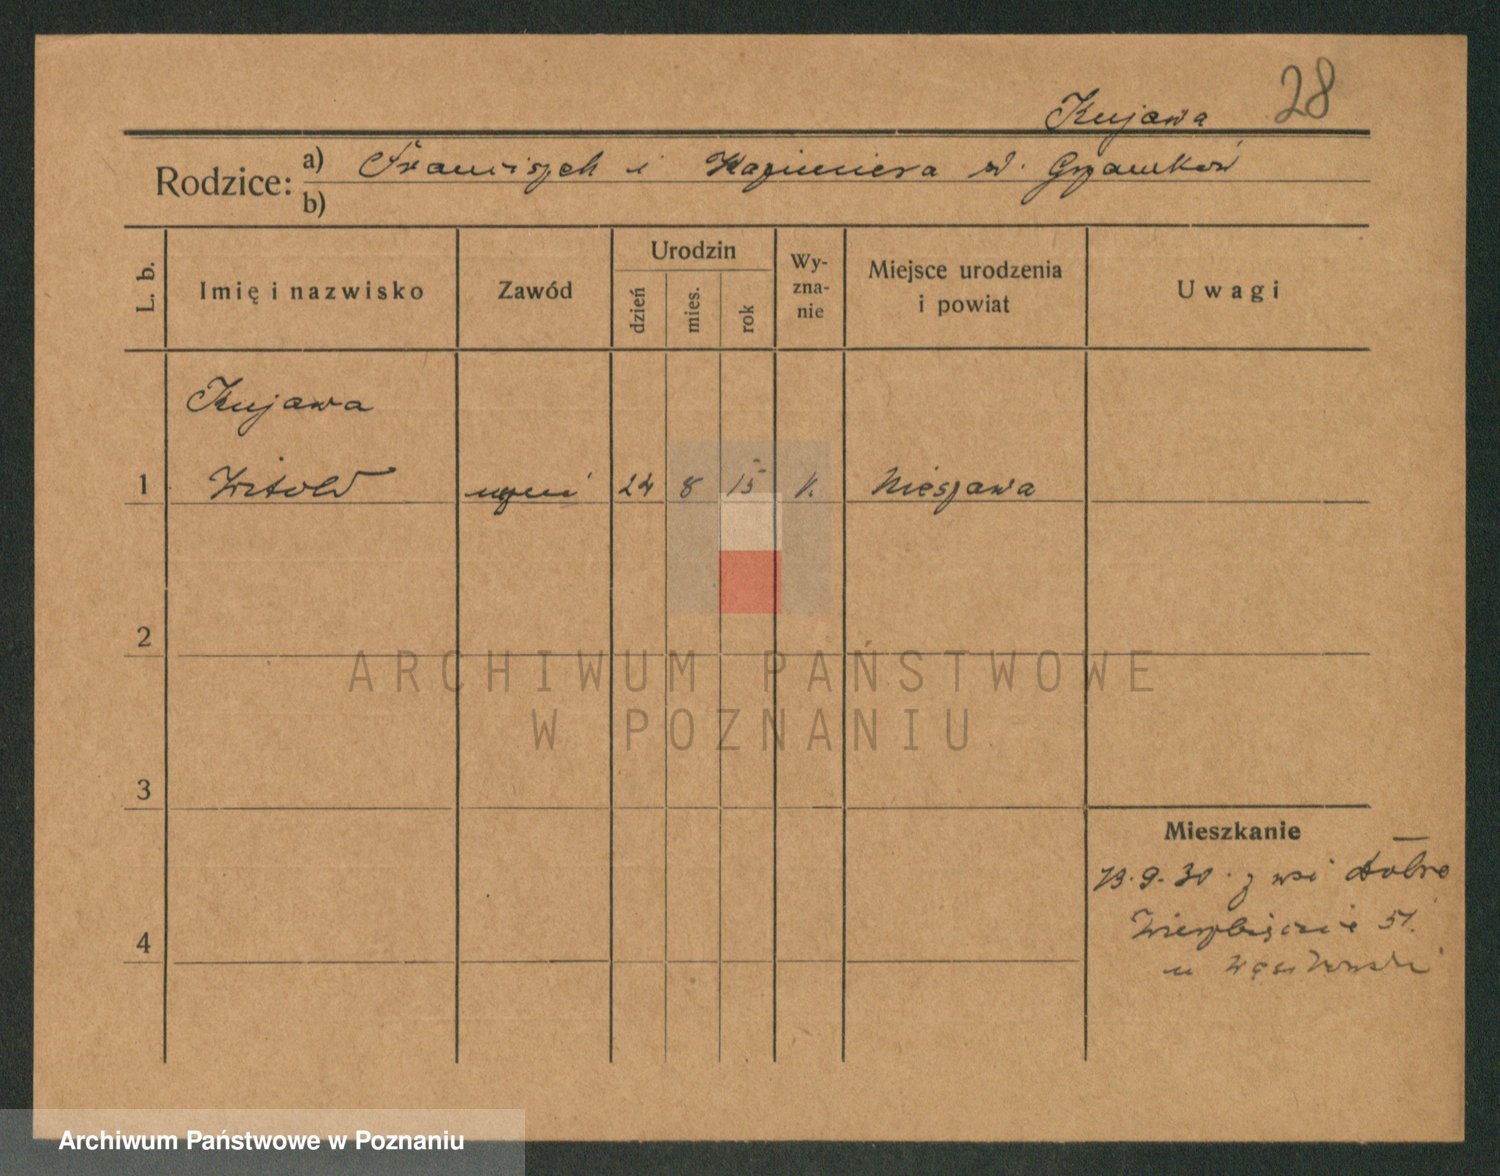 28
Kujawa
Rodzice: a) Franciszek i Kazimiera d.
b)
L. b. Imię i nazwisko Zawód Urodzin dzień mies. rok Wyznanie Miejsce urodzenia i powiat Uwagi
Kujawa
1 Witold uczeń 24 8 15 k. Nieszawa
2
ARCHIWUM PAŃSTWOWE
W POZNANIU
3
Mieszkanie
9.30. z wsi Dobre
4 Wierzbięcice 51.
u
Archiwum Państwowe w Poznaniu